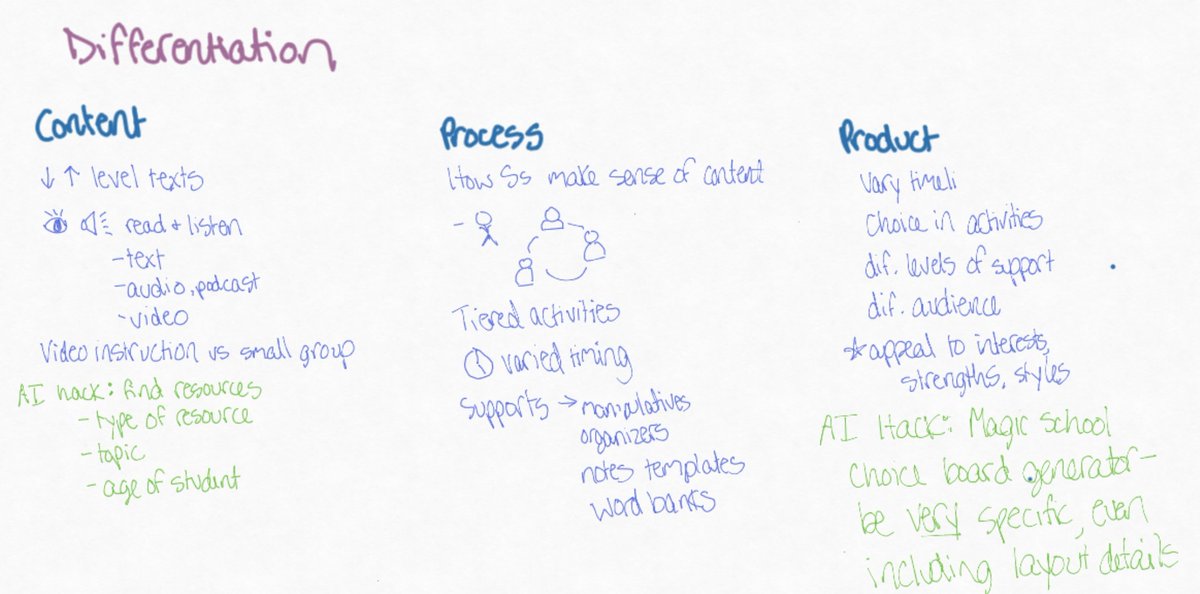 Differentiation
Content
↓ ↑ level texts
read + listen
- text
- audio, podcast
- video
Video instruction vs small group
AI hack: find resources
- type of resource
- topic
- age of student
Process
How Ss make sense of content
-
Tiered activities
varied timing
Supports → manipulatives
organizers
notes templates
word banks
Product
Vary timeli
Choice in activities
dif. levels of support
dif. audience
☆ appeal to interests,
strengths, styles
AI Hack: Magic School
Choice board generator -
be very specific, even
including layout details